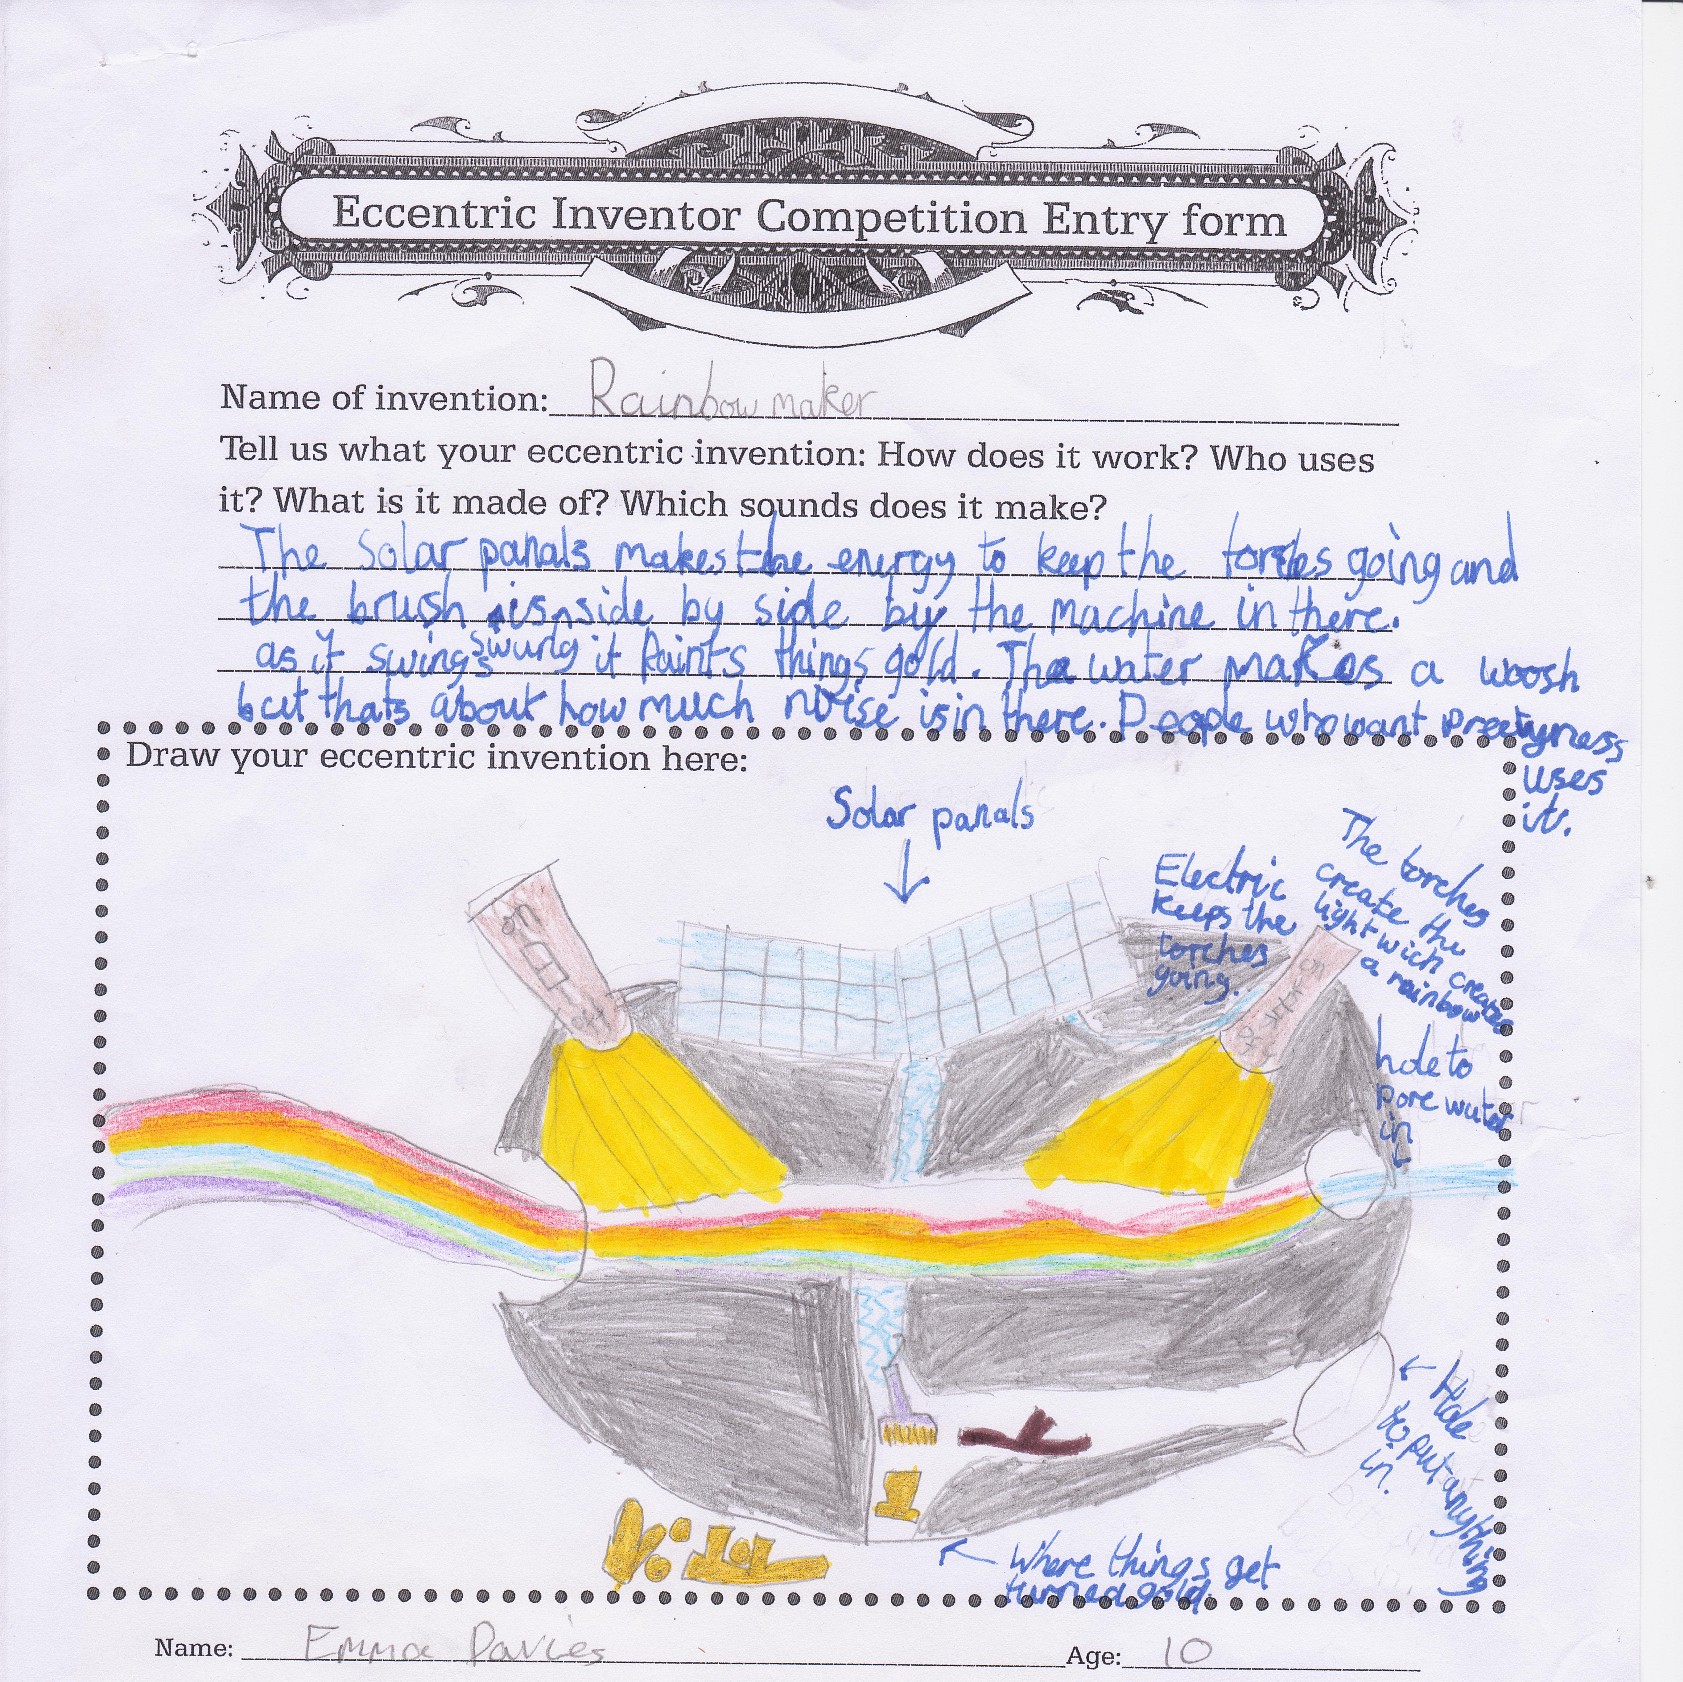 Eccentric Inventor Competition Entry form
Name of invention: Rainbow maker
Tell us what your eccentric invention: How does it work? Who uses
it? What is it made of? Which sounds does it make?
The Solar panals makes the energy to keep the torches going and
the brush is side by side by the machine in there.
as it swings swung it paints things gold. The water makes a woosh
but thats about how much noise is in there. People who want preetyness
uses
it.
Draw your eccentric invention here:
Solar panals
Electric
keeps the
torches
going..
The torches
create the
light wich creates
a rainbow
ON
OFF
ON
OFF
hole to
pore water
in
Hole
to put anything
in.
Where things get
turned gold.
Name: Emma Davies
Age: 10